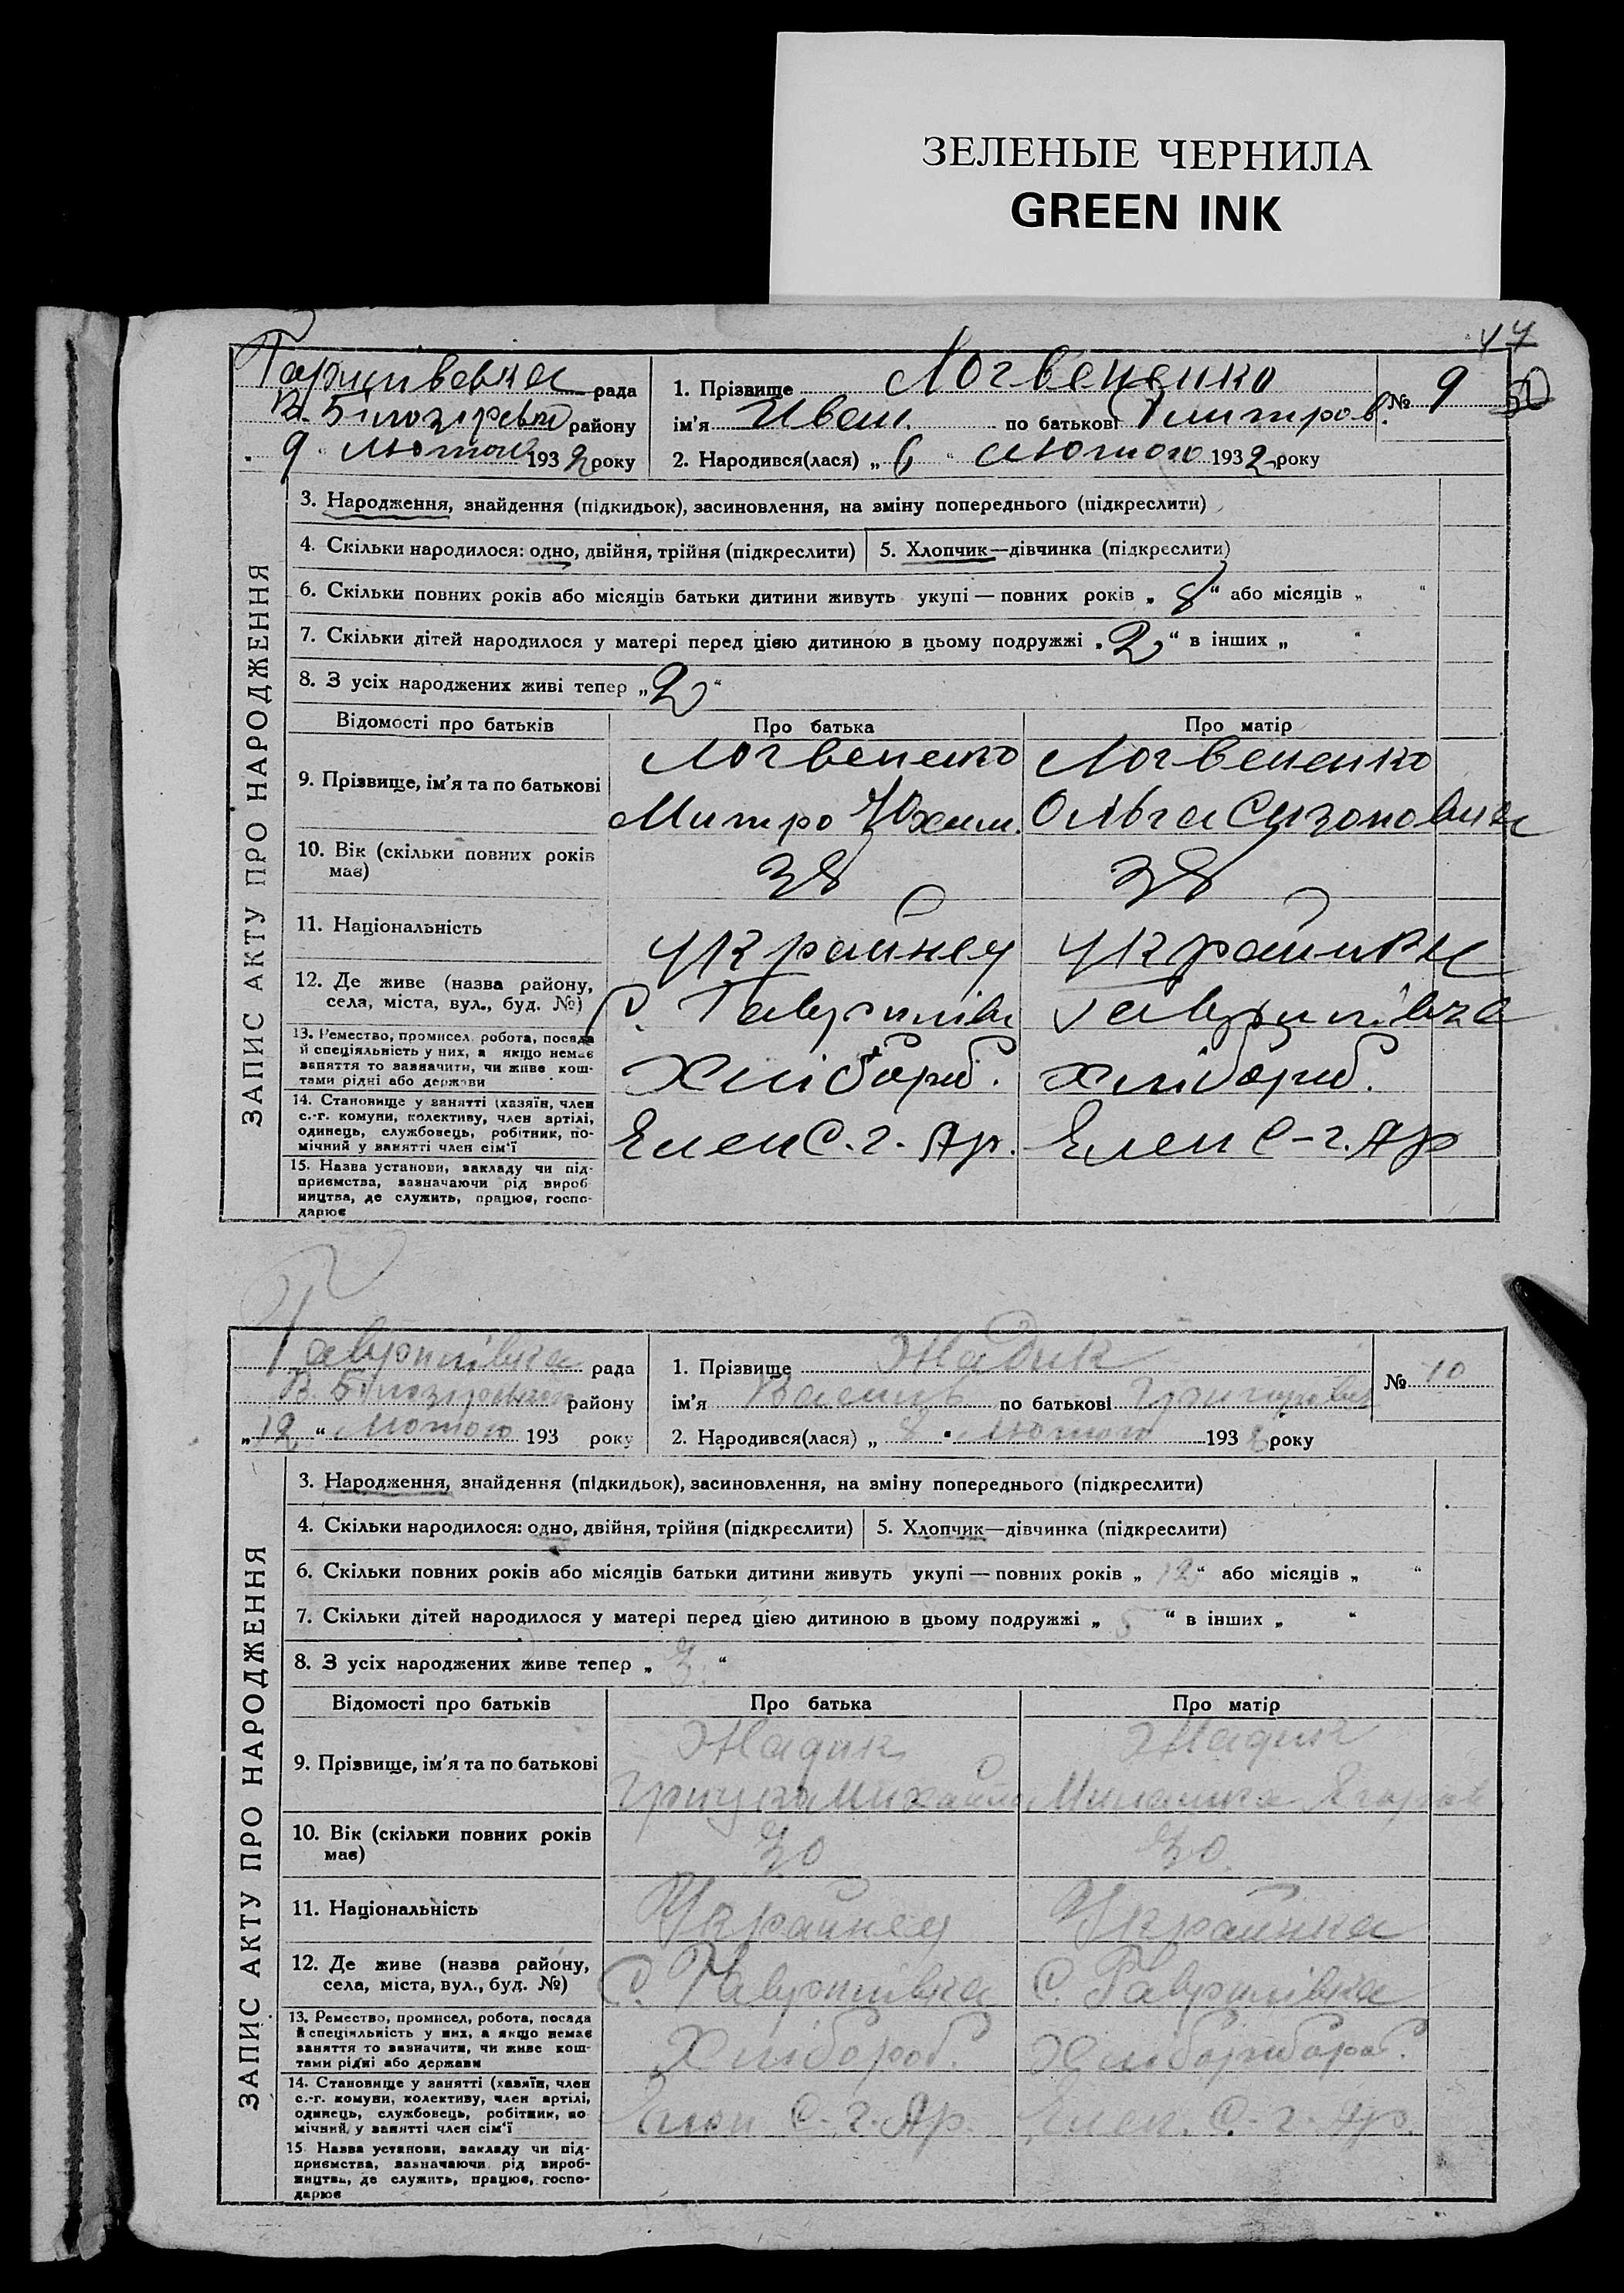 ЗЕЛЕНЫЕ ЧЕРНИЛА
GREEN INK
47
50
рада
В. Білозірськ району
9 лютого 1932 року
1. Прізвище Логвененко
№ 9
ім'я Иван. по батькові Дмитров.
2. Народився(лася) „ 6 “ лютого 1932 року
ЗАПИС АКТУ ПРО НАРОДЖЕННЯ
3. Народження, знайдення (підкидьок), засиновлення, на зміну попереднього (підкреслити)
4. Скільки народилося: одно, двійня, трійня (підкреслити)
5. Хлопчик—дівчинка (підкреслити)
6. Скільки повних років або місяців батьки дитини живуть укупі — повних років „ 8 “ або місяців „ “
7. Скільки дітей народилося у матері перед цією дитиною в цьому подружжі „ 2 “ в інших „ “
8. З усіх народжених живі тепер „ 2 “
Відомості про батьків
Про батька
Про матір
9. Прізвище, ім'я та по батькові
Логвененко
Митро Юхим.
Логвененко
Ольга Сизоновна
10. Вік (скільки повних років
має)
38
38
11. Національність
Украйнец
Украйнка
12. Де живе (назва району,
села, міста, вул., буд. №)
С. Гаврилівк
Гаврилівка
13. Ремество, промисел, робота, посада
й спеціяльність у них, а якщо немає
заняття то зазначити, чи живе кош-
тами рідні або держави
Хлібороб.
Хлібороб.
14. Становище у занятті (хазяїн, член
с.-г. комуни, колективу, член артілі,
одинець, службовець, робітник, по-
мічний у занятті член сім'ї
Член С.-г. Ар.
Член С-г. Ар
15. Назва установи, закладу чи під-
приємства, зазначаючи рід вироб
ництва, де служить, працює, госпо-
дарює
Гаврилівка рада
В. Білозірськ району
„ 12 “ Лютого 193 року
1. Прізвище Жадик
№ 10
ім'я Василь по батькові Григорович
2. Народився(лася) „ 8 “ Лютого 193 року
ЗАПИС АКТУ ПРО НАРОДЖЕННЯ
3. Народження, знайдення (підкидьок), засиновлення, на зміну попереднього (підкреслити)
4. Скільки народилося: одно, двійня, трійня (підкреслити)
5. Хлопчик—дівчинка (підкреслити)
6. Скільки повних років або місяців батьки дитини живуть укупі — повних років „ 12 “ або місяців „ “
7. Скільки дітей народилося у матері перед цією дитиною в цьому подружжі „ 5 “ в інших „ “
8. З усіх народжених живе тепер „ 3 “
Відомості про батьків
Про батька
Про матір
9. Прізвище, ім'я та по батькові
Жадик
Михайло
Жадик
10. Вік (скільки повних років
має)
30
30
11. Національність
Украйнец
Украйнка
12. Де живе (назва району,
села, міста, вул., буд. №)
С. Гаврилівка
С. Гаврилівка
13. Ремество, промисел, робота, посада
й спеціяльність у них, а якщо немає
заняття то зазначити, чи живе кош-
тами рідні або держави
Хлібороб.
14. Становище у занятті (хазяїн, член
с.-г. комуни, колективу, член артілі,
одинець, службовець, робітник, по
мічний у занятті член сім'ї
Член С.-г. Ар.
Член. С. г. Ар.
15. Назва установи, закладу чи під-
приємства, зазначаючи рід вироб-
ництва, де служить, працює, госпо-
дарює